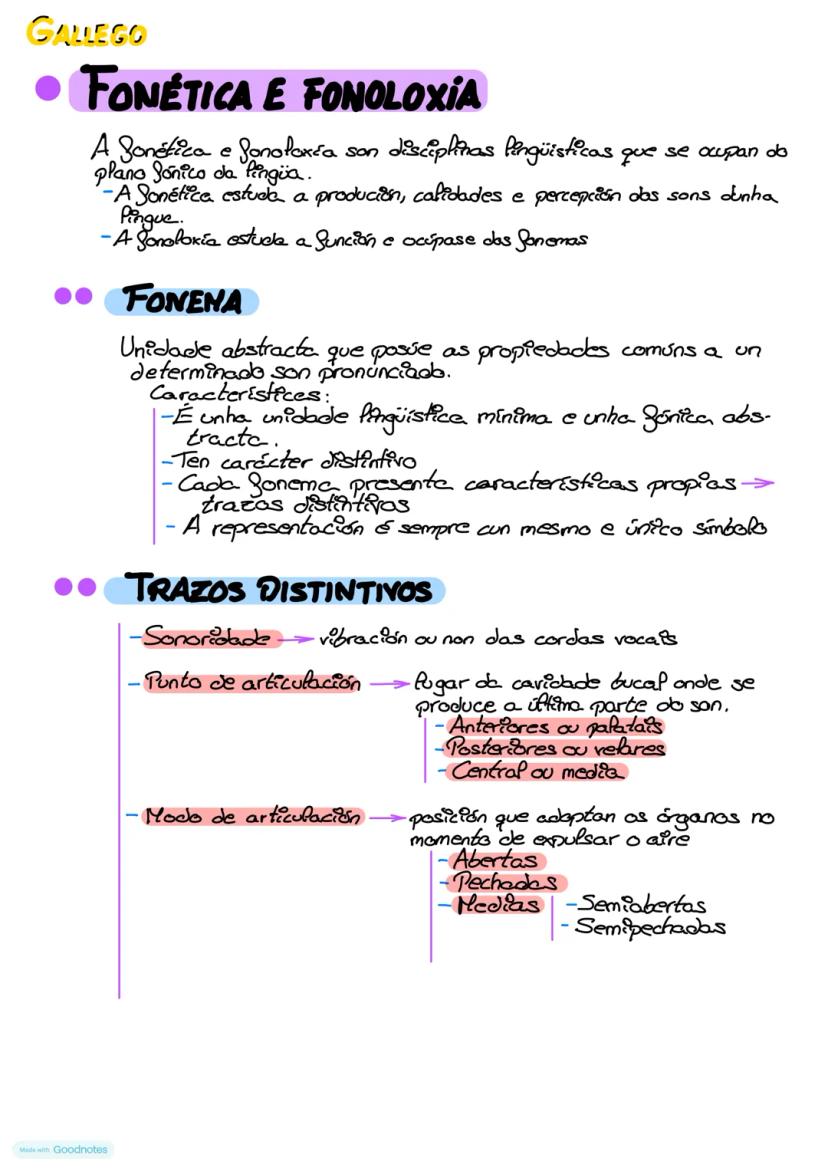 GALLEGO
FONÉTICA E FONOLOXÍA
A fonética e fonoloxía son disciplinas lingüísticas que se ocupan do
plano fónico da lingüa.
- A fonética estuda a produción, calidades e percepción dos sons dunha
lingue.
- A fonoloxía estuda a función e ocúpase dos fonemas
FONEMA
Unidade abstracta que posúe as propiedades comúns a un
determinado son pronunciado.
Características:
- É unha unidade lingüística mínima e unha fónica abs-
tracta.
- Ten carácter distintivo
- Cada fonema presenta características propias →
trazos distintivos
- A representación é sempre cun mesmo e único símbolo
TRAZOS DISTINTIVOS
- Sonoridade → vibración ou non das cordas vocais
- Punto de articulación → lugar da cavidade bucal onde se
produce a última parte do son.
- Anteriores ou palatais
- Posteriores ou velares
- Central ou media
- Modo de articulación → posición que adoptan os órganos no
momento de expulsar o aire
- Abertas
- Pechadas
- Medias - Semiabertas
- Semipechadas
Made with Goodnotes